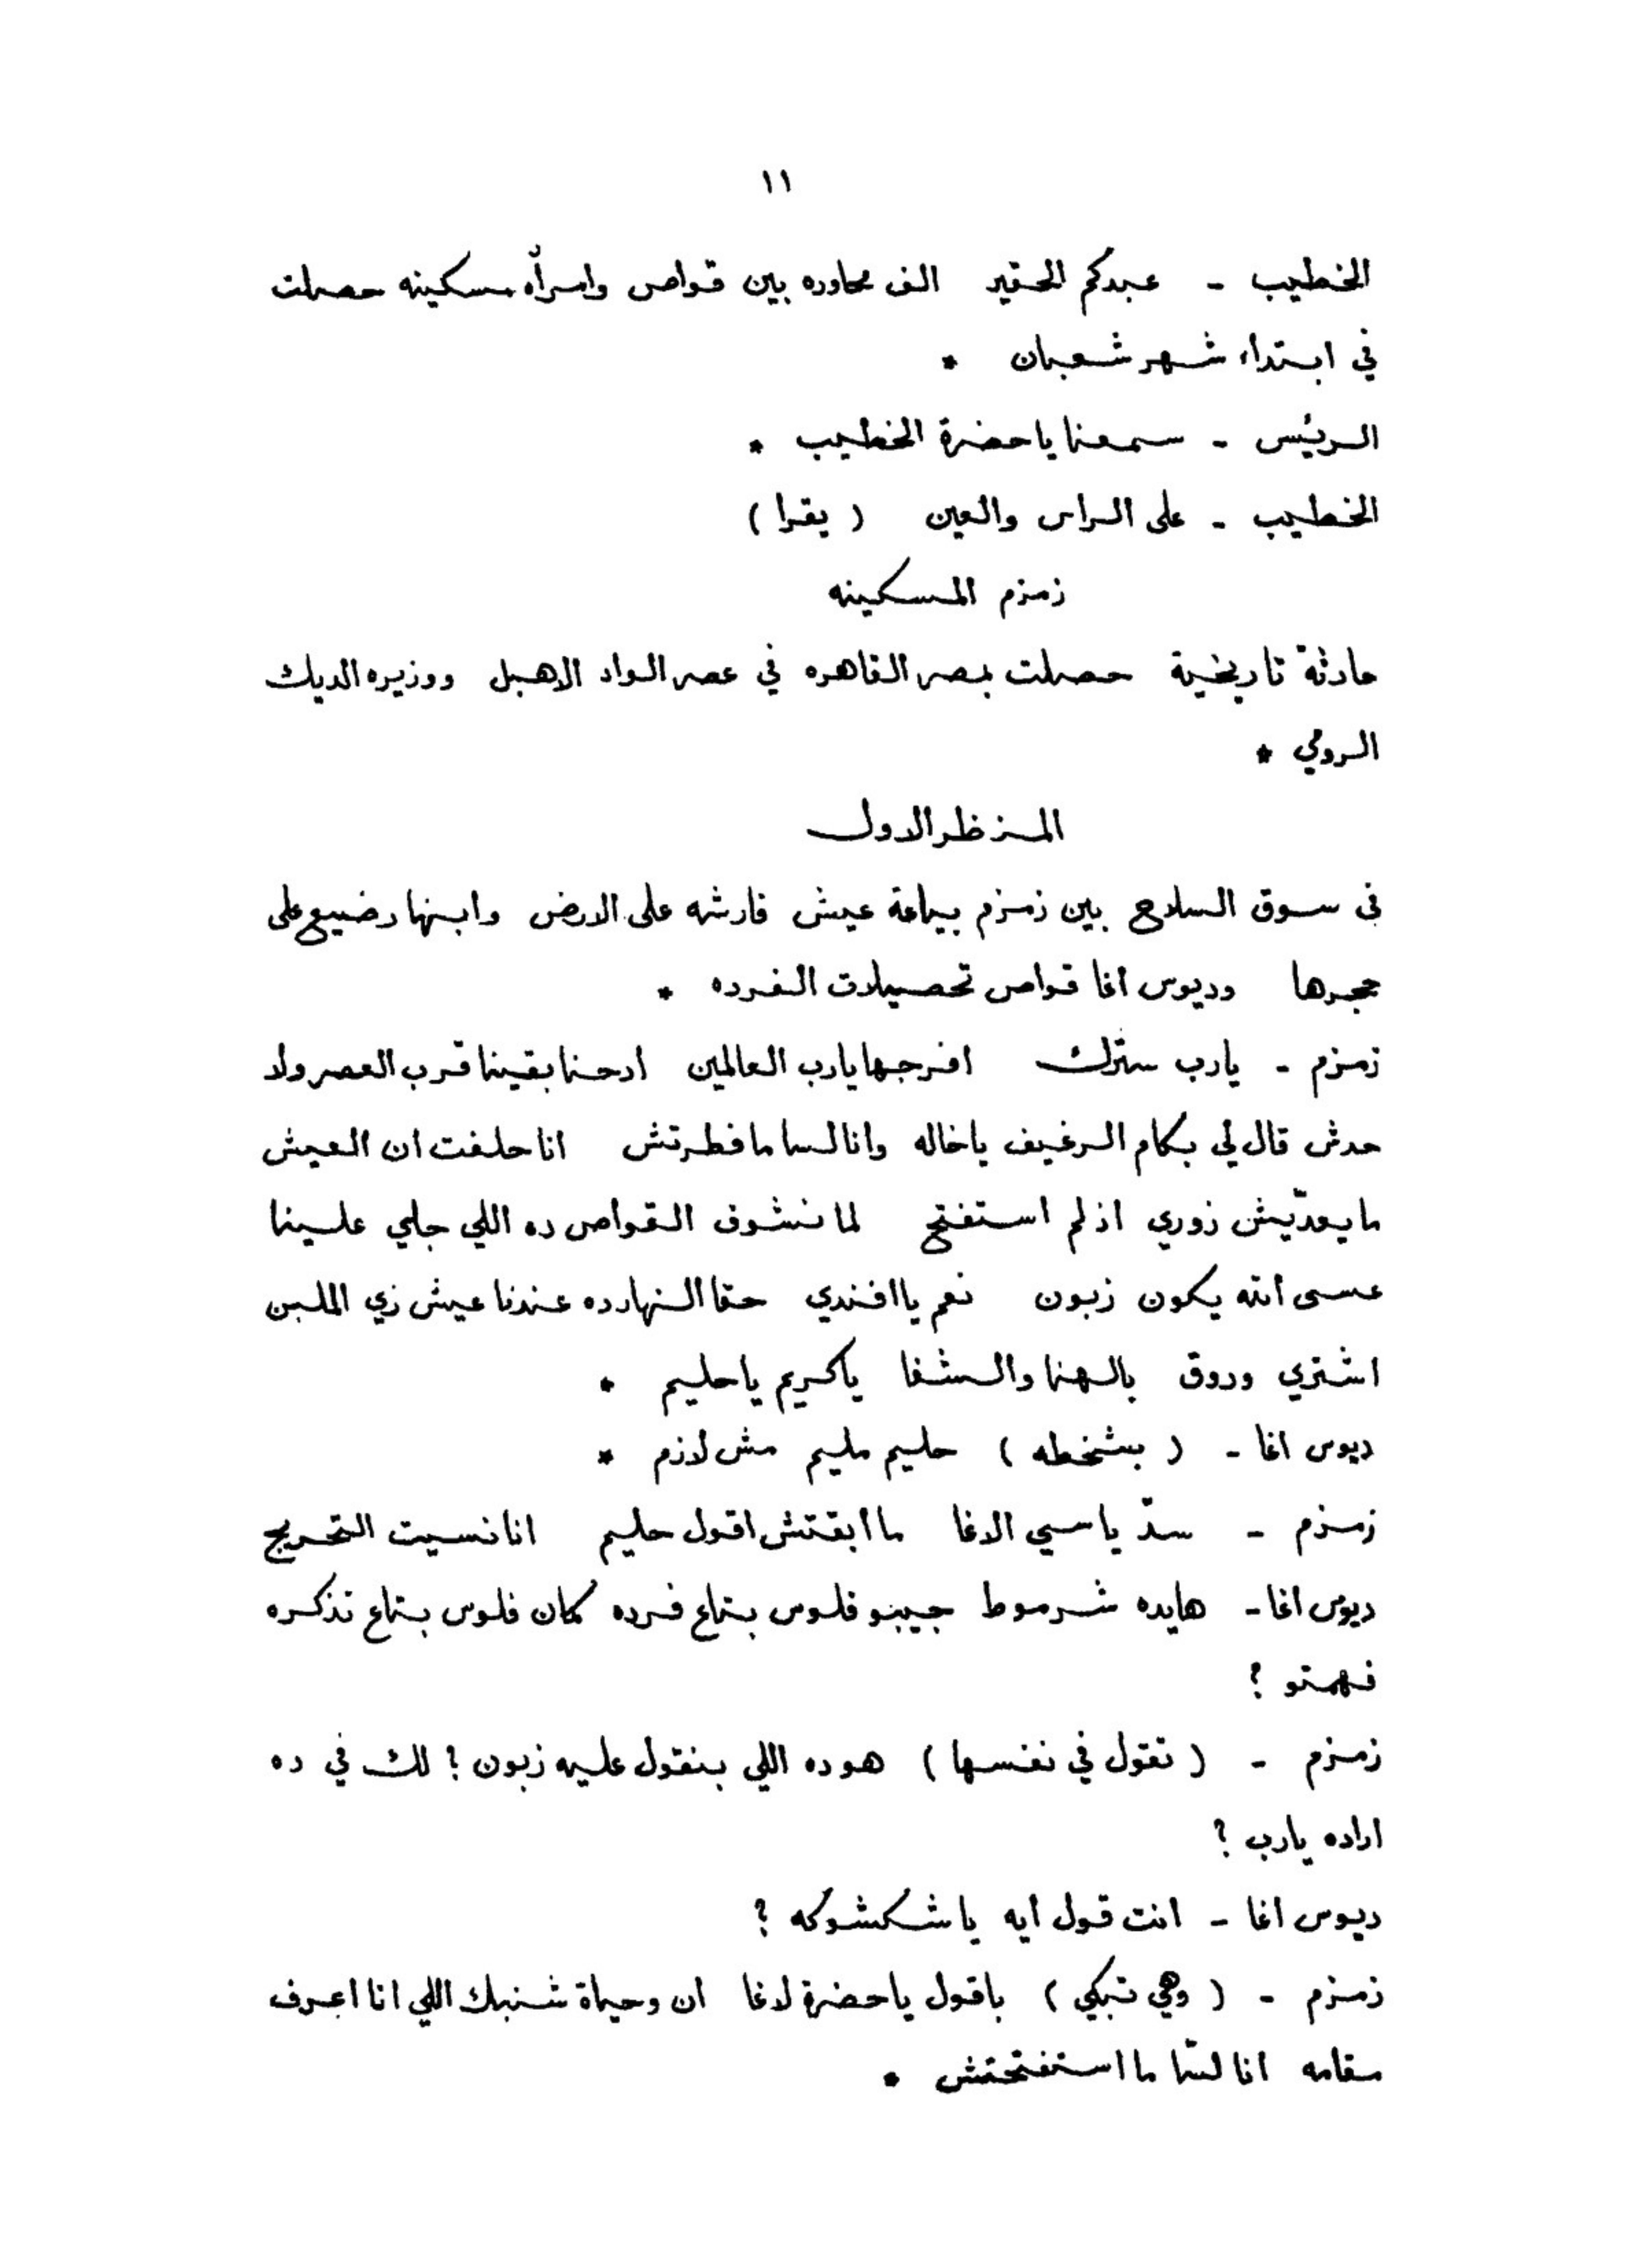 ١١
الخطيب - عبدكم الحقير الف محاوره بين قواص وامرأه مسكينه حصلت
في ابتداء شهر شعبان *
الريئس - سمعنا ياحضرة الخطيب *
الخطيب - على الراس والعين ( يقرا )
زمزم المسكينه
حادثة تاريخية حصلت بمصر القاهره في عصر الواد الاهبل ووزيره الديك
الرومي *
المنظر الاول
في سوق السلاح بين زمزم بياعة عيش فارشه على الارض وابنها رضيع على
حجرها وديوس اغا قواص تحصيلات الفرده *
زمزم - يارب سترك افرجها يارب العالمين ادحنا بقينا قرب العصر ولا
حدش قال لي بكام الرغيف ياخاله وانا لسا ما فطرتش انا حلفت ان العيش
ما يعدّيش زوري اذ لم استفتح لما نشوف القواص ده اللي جاي علينا
عسى الله يكون زبون نعم يا افندي حقا النهارده عندنا عيش زي الملبن
اشتري وروق بالهنا والشفا ياكريم ياحليم *
ديوس اغا - ( بشخطه ) حليم مليم مش لازم *
زمزم - سدّ ياسي الاغا ما ابقتش اقول حليم انا نسيت التحريج
ديوس اغا - هايده شرموط جيبو فلوس بتاع فرده كمان فلوس بتاع تذكره
فهمتو ؟
زمزم - ( تقول في نفسها ) هو ده اللي بنقول عليه زبون ؟ لك في ده
اراده يارب ؟
ديوس اغا - انت قول ايه ياشكشوكه ؟
زمزم - ( وهي تبكي ) باقول ياحضرة لاغا ان وحياة شنبك اللي انا اعرف
مقامه انا لسّا ما استفتحتش *